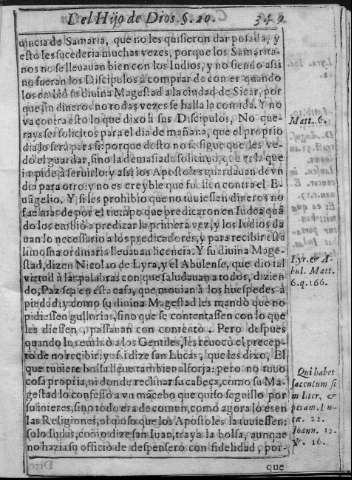 del Hijo de Dios. §. 20. 349
uincia de Samaria, que no les quisieron dar posada, y
esto les sucederia muchas vezes, porque los Samarita-
nos no se lleuauan bien con los Iudios, y no siendo assi
no fueran los Discipulos à comprar de comer quando
los embiò su diuina Magestad a la ciudad de Sicar, por
que sin dineros no todas vezes se halla la comida. Y no
va contra esto lo que dixo à sus Discipulos, No que-
rays ser solicitos para el dia de mañana, que el proprio
dia lo serà para si: porque desto no se sigue que les ve-
dò el guardar, sino la demasiada solicitud, que era la que
impide à seruirle: y assi los Apostoles guardauan de vn
dia para otro: y no es creyble que fuessen contra el E-
uangelio. Y si les prohibio que no tuuiessen dineros no
fue mas de por el tiempo que predicaron en Iudea quā
do los embiò a predicar la primera vez, y los Iudios da
uan lo necessario a los predicadores, y para recibir esta
limosna ordinaria lleuauan licencia. Y su diuina Mage-
stad, dizen Nicolao de Lyra, y el Abulense, que dio tal
virtud à las palabras con que saludauan a todos, dizien
do, Paz sea en esta casa, que mouian à los huespedes à
piedad: y como su diuina Magestad les mandò que no
pidiessen gullorias, sino que se contentassen con lo que
les diessen, passauan con contento. Pero despues
quando los embiò a los Gentiles, les reuocò el precep-
to de no recibir, y assi dize san Lucas, que les dixo, El
que tuuiere bolsa lleue tambien alforja: pero no tuuo
cosa propria, ni donde reclinar su cabeça, como su Ma
gestad lo confessò a vn mācebo que quiso seguillo por
sus interes, sino todo era de comun, como agora lo es en
las Religiones, al qual que los Apostoles la tuuiessen:
solo Iudas, como dize san Iuan, traya la bolsa, aunque
no hazia su officio de despensero con fidelidad, por-
que
Matt. 6.
Lyr. & A-
bul. Matt.
6. q. 166.
Qui habet
sacculum si
militer, &
peram. Lu-
cæ. 22.
Ioann. 12.
V. 16.